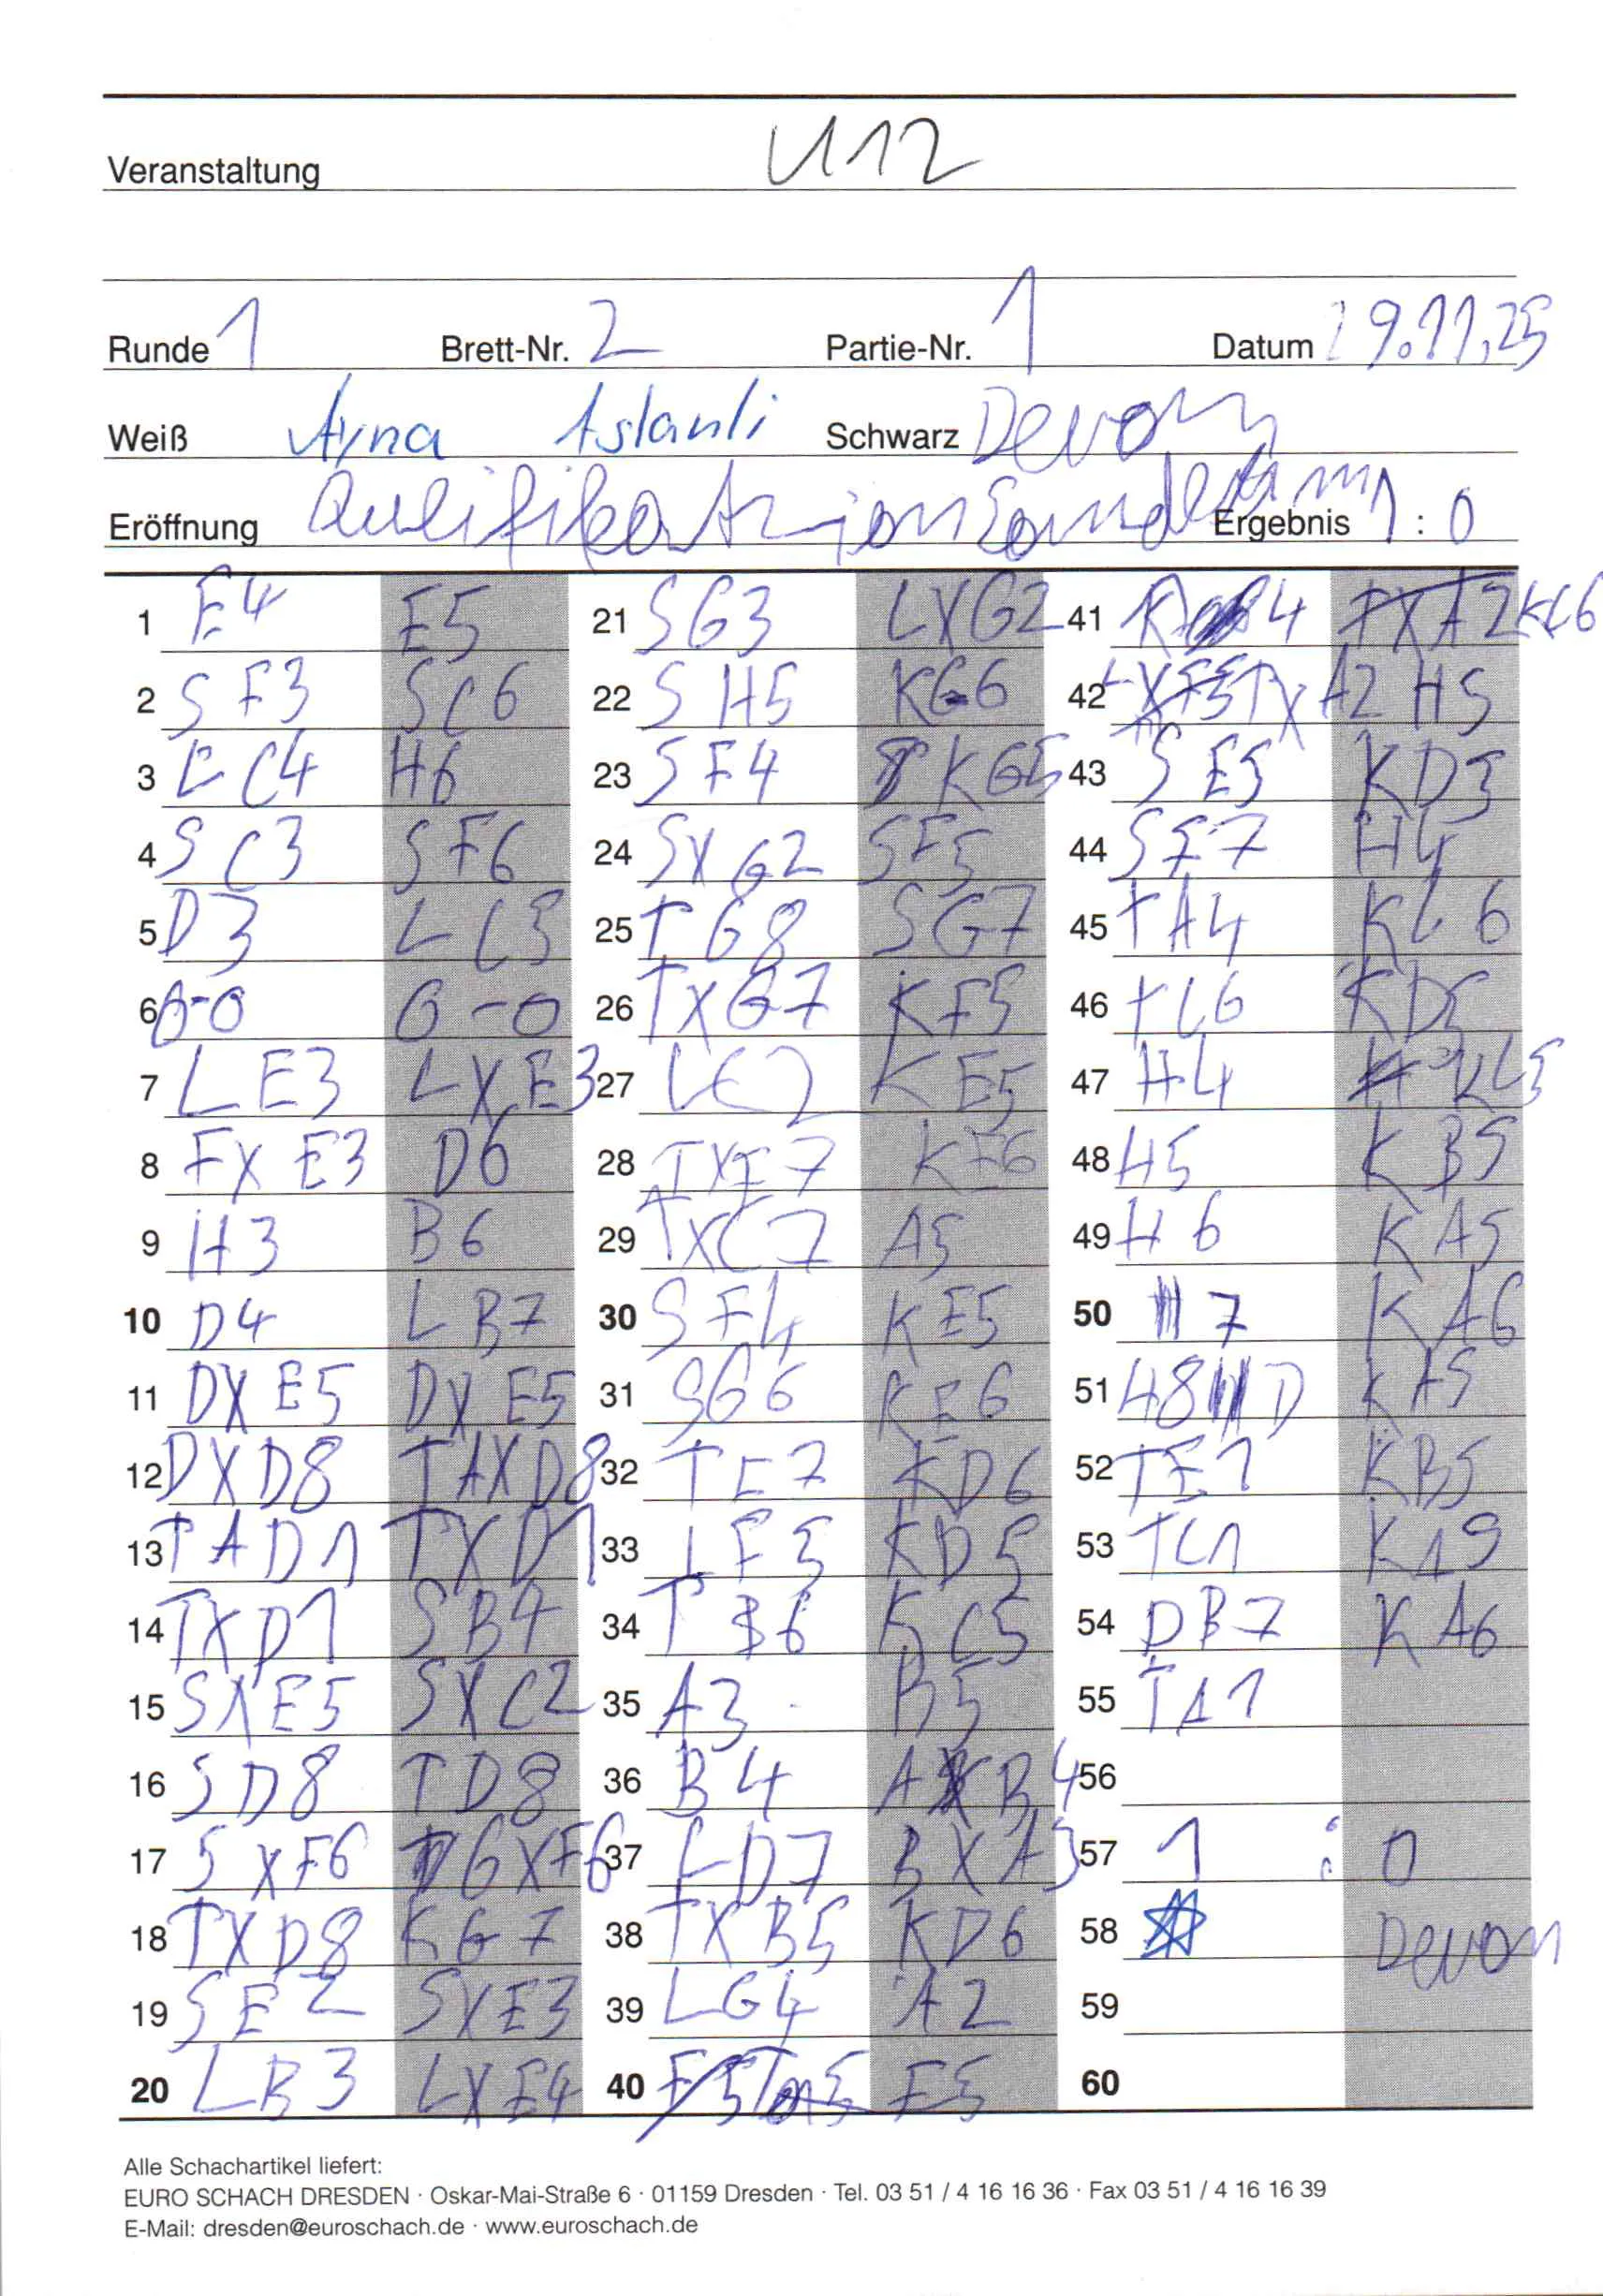 Veranstaltung U12
Runde 1 Brett-Nr. 2 Partie-Nr. 1 Datum 29.11.25
Weiß Ayna Aslanli Schwarz Devon
Eröffnung Ergebnis 1 : 0
1 E4 E5
2 SF3 SC6
3 LC4 H6
4 SC3 SF6
5 D3 LC5
6 0-0 0-0
7 LE3 LXE3
8 FXE3 D6
9 H3 B6
10 D4 LB7
11 DXE5 DXE5
12 DXD8 TAXD8
13 TAD1 TXD1
14 TXD1 SB4
15 SXE5 SXC2
16 SD8 TD8
17 SXF6 GXF6
18 TXD8 KG7
19 SE2 SXE3
20 LB3 LXE4
21 SG3 LXG2
22 SH5 KG6
23 SF4 KG5
24 SXG2 SF5
25 TG8 SG7
26 TXG7 KF5
27 LC2 KE5
28 TXF7 KE6
29 TXC7 A5
30 SF4 KE5
31 SG6 KE6
32 TE7 KD6
33 LF5 KD5
34 TB6 KC5
35 A3 B5
36 B4 AXB4
37 LD7 BXA3
38 TXB5 KD6
39 LG4 A2
40 F5
41 KC6
42 TXA2 H5
43 SE5 KD5
44 SF7 H4
45 TA4 KC6
46 TC6 KD5
47 H4 KC5
48 H5 KB5
49 H6 KA5
50 H7 KA6
51 H8D KA5
52 TE1 KB5
53 TC1 KA5
54 DB7 KA6
55 TA1
56
57 1 : 0
58 Devon
59
60
Alle Schachartikel liefert:
EURO SCHACH DRESDEN · Oskar-Mai-Straße 6 · 01159 Dresden · Tel. 03 51 / 4 16 16 36 · Fax 03 51 / 4 16 16 39
E-Mail: dresden@euroschach.de · www.euroschach.de